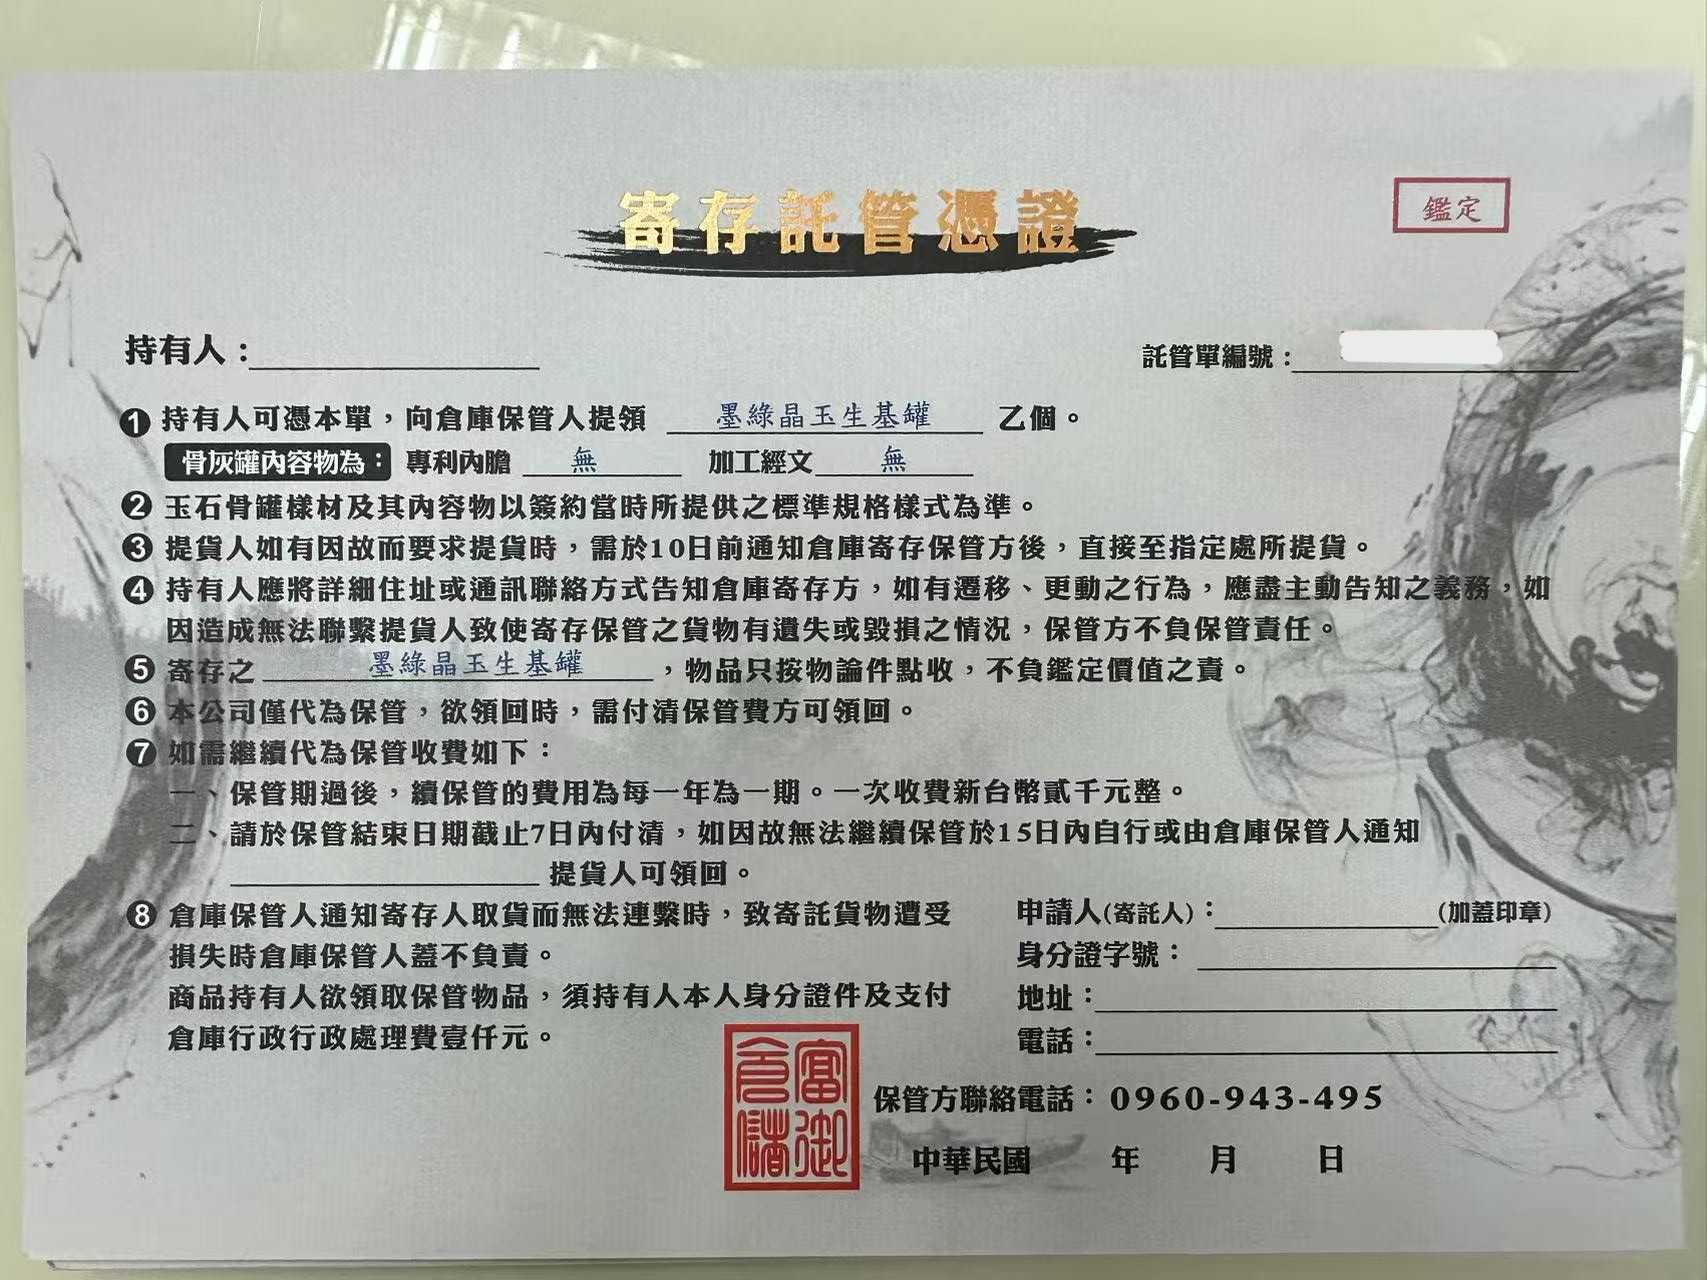 寄存託管憑證
鑑定
持有人：
託管單編號：
❶ 持有人可憑本單，向倉庫保管人提領 墨綠晶玉生基罐 乙個。
骨灰罐內容物為： 專利內膽 無 加工經文 無
❷ 玉石骨罐樣材及其內容物以簽約當時所提供之標準規格樣式為準。
❸ 提貨人如有因故而要求提貨時，需於10日前通知倉庫寄存保管方後，直接至指定處所提貨。
❹ 持有人應將詳細住址或通訊聯絡方式告知倉庫寄存方，如有遷移、更動之行為，應盡主動告知之義務，如
因造成無法聯繫提貨人致使寄存保管之貨物有遺失或毀損之情況，保管方不負保管責任。
❺ 寄存之 墨綠晶玉生基罐 ，物品只按物論件點收，不負鑑定價值之責。
❻ 本公司僅代為保管，欲領回時，需付清保管費方可領回。
❼ 如需繼續代為保管收費如下：
一、保管期過後，續保管的費用為每一年為一期。一次收費新台幣貳千元整。
二、請於保管結束日期截止7日內付清，如因故無法繼續保管於15日內自行或由倉庫保管人通知
提貨人可領回。
❽ 倉庫保管人通知寄存人取貨而無法連繫時，致寄託貨物遭受
損失時倉庫保管人蓋不負責。
商品持有人欲領取保管物品，須持有人本人身分證件及支付
倉庫行政行政處理費壹仟元。
申請人(寄託人)： (加蓋印章)
身分證字號：
地址：
電話：
富御倉儲
保管方聯絡電話：0960-943-495
中華民國 年 月 日